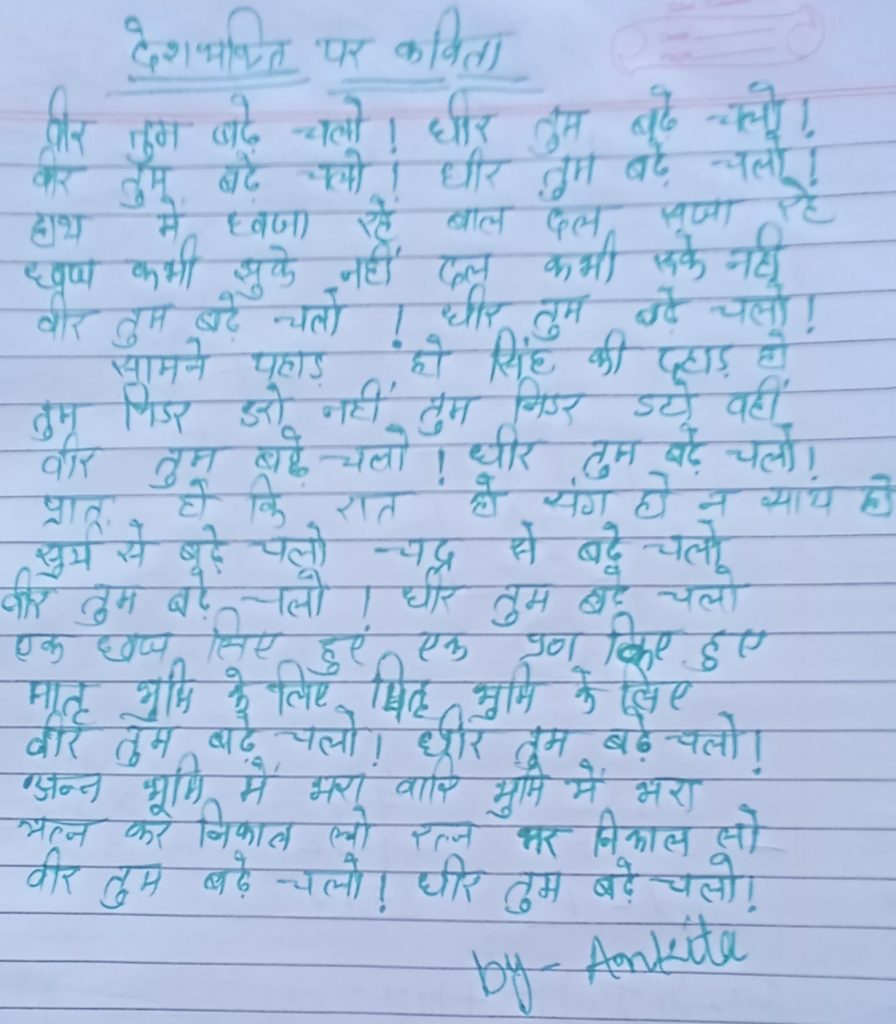 देशभक्ति पर कविता
वीर तुम बढ़े चलो! धीर तुम बढ़े चलो!
वीर तुम बढ़े चलो! धीर तुम बढ़े चलो!
हाथ में ध्वजा रहे बाल दल सजा रहे
ध्वज कभी झुके नहीं दल कभी रुके नहीं
वीर तुम बढ़े चलो! धीर तुम बढ़े चलो!
सामने पहाड़ हो सिंह की दहाड़ हो
तुम निडर डरो नहीं तुम निडर डटो वहीं
वीर तुम बढ़े चलो! धीर तुम बढ़े चलो!
प्रात हो कि रात हो संग हो न साथ हो
सूर्य से बढ़े चलो चन्द्र से बढ़े चलो
वीर तुम बढ़े चलो! धीर तुम बढ़े चलो
एक ध्वज लिए हुए एक प्रण किए हुए
मातृ भूमि के लिए पितृ भूमि के लिए
वीर तुम बढ़े चलो! धीर तुम बढ़े चलो!
अन्न भूमि में भरा वारि भूमि में भरा
यत्न कर निकाल लो रत्न भर निकाल लो
वीर तुम बढ़े चलो! धीर तुम बढ़े चलो!
by - Ankita